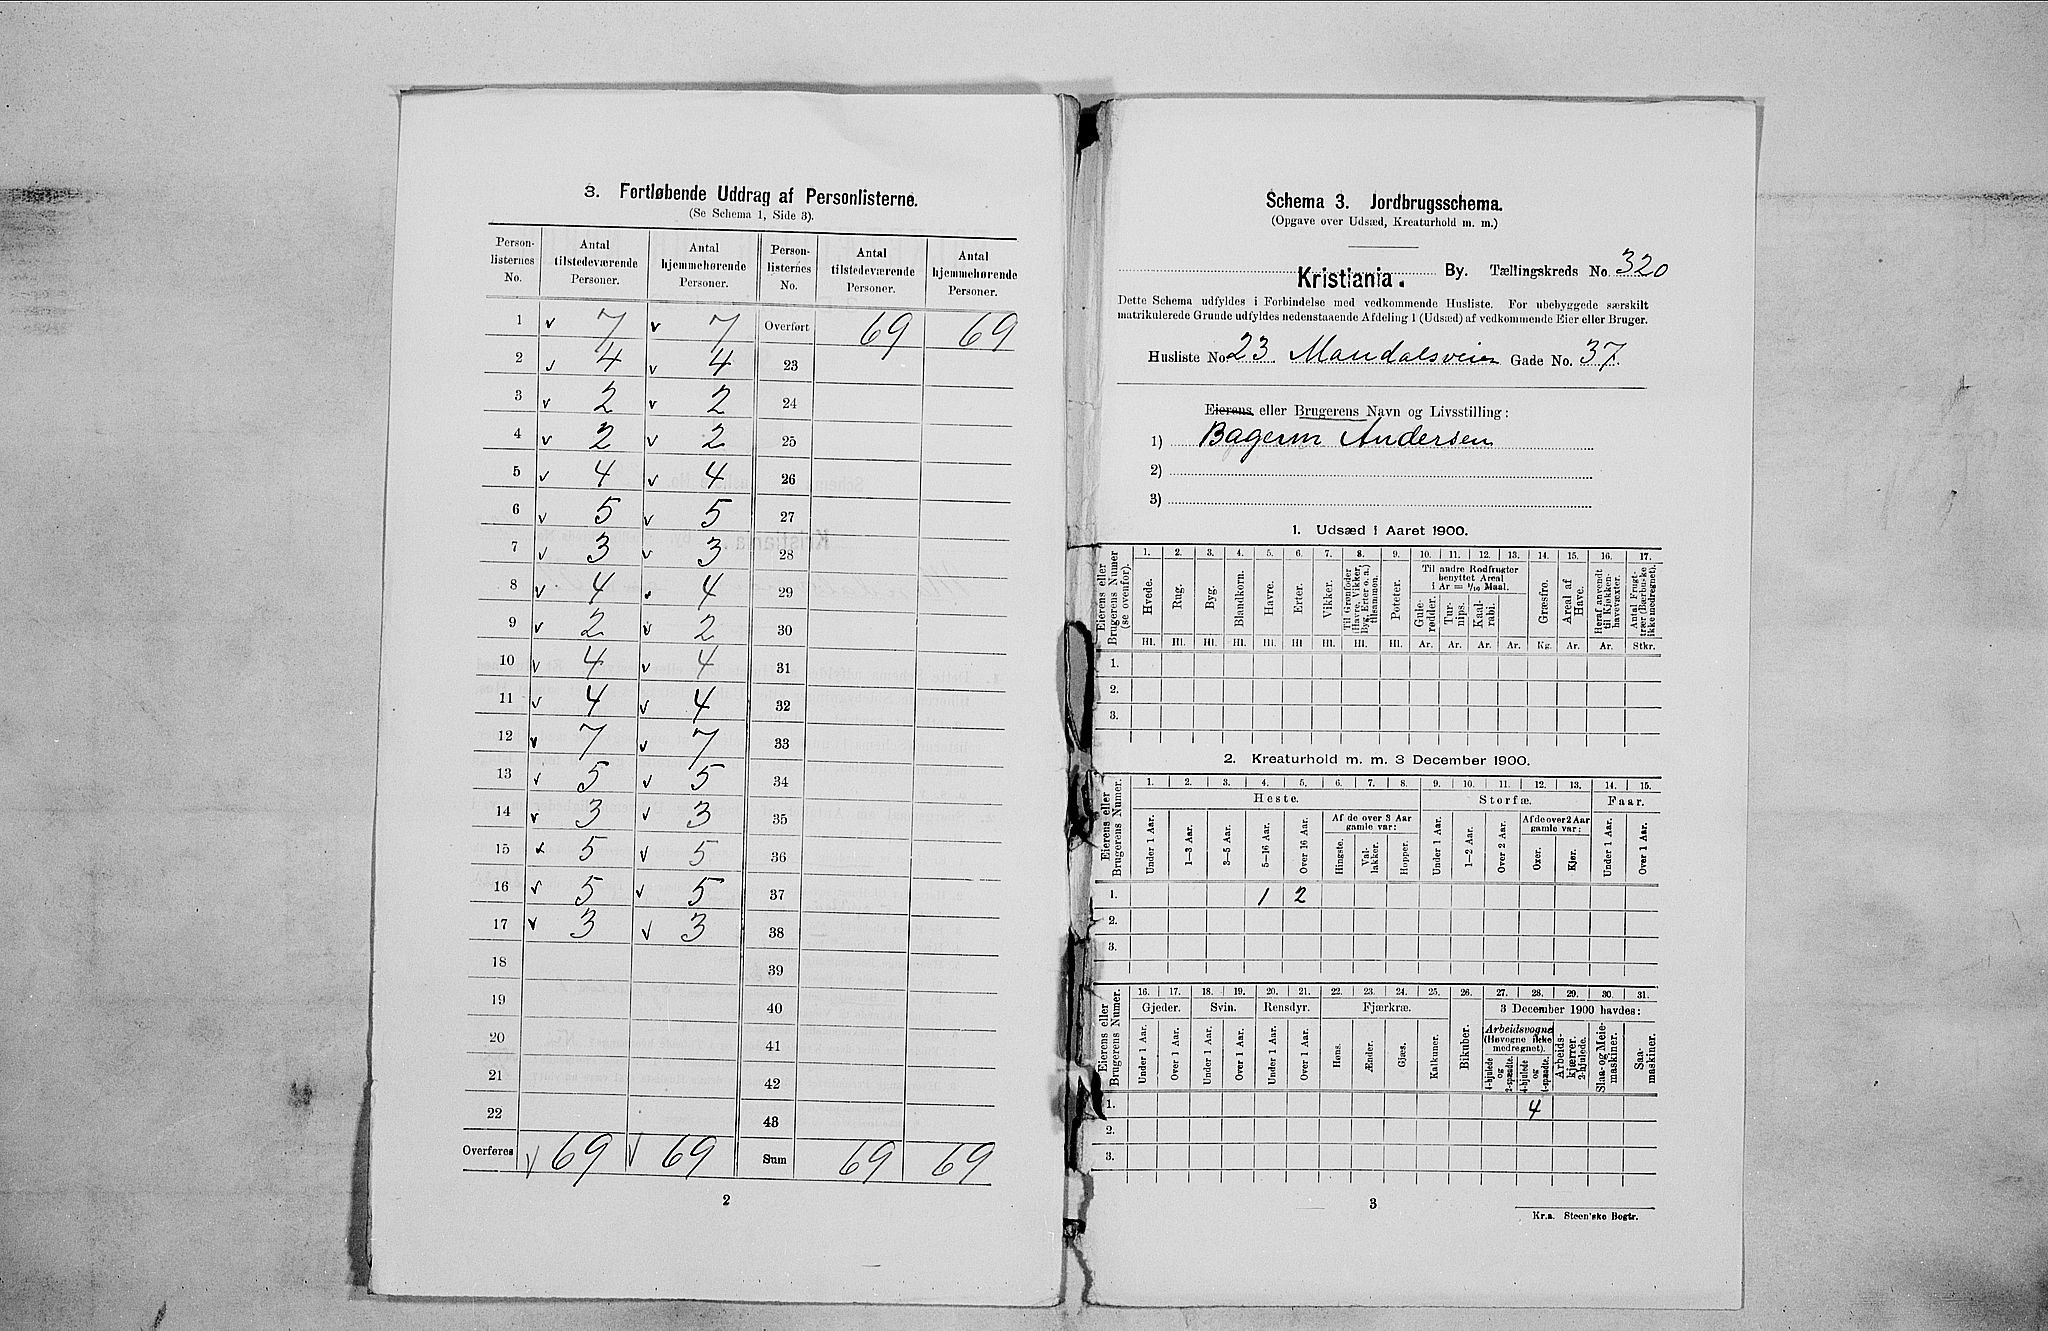 3. Fortløbende Uddrag af Personlisterne.
(Se Schema 1, Side 3).
Person-listernes No. | Antal tilstedeværende Personer. | Antal hjemmehørende Personer. | Person-listernes No. | Antal tilstedeværende Personer. | Antal hjemmehørende Personer.
1 v 7 v 7 Overført 69 69
2 v 4 v 4 23
3 v 2 v 2 24
4 v 2 v 2 25
5 v 4 v 4 26
6 v 5 v 5 27
7 v 3 v 3 28
8 v 4 4 29
9 v 2 v 2 30
10 v 4 v 4 31
11 v 4 v 4 32
12 v 7 v 7 33
13 v 5 v 5 34
14 v 3 v 3 35
15 v 5 v 5 36
16 v 5 v 5 37
17 v 3 v 3 38
18 39
19 40
20 41
21 42
22 43
Overføres v 69 v 69 Sum 69 69
2
Schema 3. Jordbrugsschema.
(Opgave over Udsæd, Kreaturhold m. m.)
Kristiania. By. Tællingskreds No. 320
Dette Schema udfyldes i Forbindelse med vedkommende Husliste. For ubebyggede særskilt
matrikulerede Grunde udfyldes nedenstaaende Afdeling 1 (Udsæd) af vedkommende Eier eller Bruger.
Husliste No. 23 Mandalsveien Gade No. 37
Eierens eller Brugerens Navn og Livsstilling:
1) Bagerm Andersen
2)
3)
1. Udsæd i Aaret 1900.
Eierens eller Brugerens Numer (se ovenfor).
1. 2. 3. 4. 5. 6. 7. 8. 9. 10. 11. 12. 13. 14. 15. 16. 17.
Til andre Rodfrugter benyttet Areal i Ar = 1/10 Maal.
Hvede. Rug. Byg. Blandkorn. Havre. Erter. Vikker. Til Grønfoder (Havre, Vikker, Byg, Erter o. a.) tilsammen. Poteter. Gule-rødder. Tur-nips. Kaal-rabi. Græsfrø. Areal af Have. Heraf anvendt til Kjøkken-havevæxter. Antal Frugt-trær (Bærbuske ikke medregnet).
Hl. Hl. Hl. Hl. Hl. Hl. Hl. Hl. Hl. Ar. Ar. Ar. Ar. Kg. Ar. Ar. Stkr.
1.
2.
3.
2. Kreaturhold m. m. 3 December 1900.
Eierens eller Brugerens Numer.
1. 2. 3. 4. 5. 6. 7. 8. 9. 10. 11. 12. 13. 14. 15.
Heste. Storfæ. Faar.
Af de over 3 Aar gamle var: Af de over 2 Aar gamle var:
Under 1 Aar. 1–3 Aar. 3–5 Aar. 5–16 Aar. Over 16 Aar. Hingste. Val-lakker. Hopper. Under 1 Aar. 1–2 Aar. Over 2 Aar. Oxer. Kjør. Under 1 Aar. Over 1 Aar.
1. 1 2
2.
3.
Eierens eller Brugerens Numer.
16. 17. 18. 19. 20. 21. 22. 23. 24. 25. 26. 27. 28. 29. 30. 31.
Gjeder. Svin. Rensdyr. Fjærkræ. 3 December 1900 havdes:
Arbeidsvogne (Høvogne ikke medregnet).
Under 1 Aar. Over 1 Aar. Under 1 Aar. Over 1 Aar. Under 1 Aar. Over 1 Aar. Høns. Ænder. Gjæs. Kalkuner. Bikuber. 4-hjulede og 2-spændte. 4-hjulede og 1-spændte. Arbeids-kjærrer. 2-hjulede. Slaa- og Meie-maskiner. Saa-maskiner.
1. 4
2.
3.
3
Kr.a. Steen'ske Bogtr.